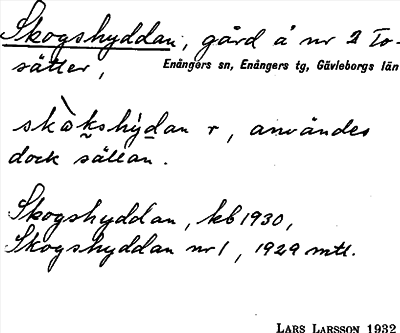 Skogshyddan, gård å nr 2 To-
sätter, Enångers sn, Enångers tg, Gävleborgs län
skòkshýdan r, användes
dock sällan.
Skogshyddan, kb 1930,
Skogshyddan nr 1, 1929 mtl.
LARS LARSSON 1932